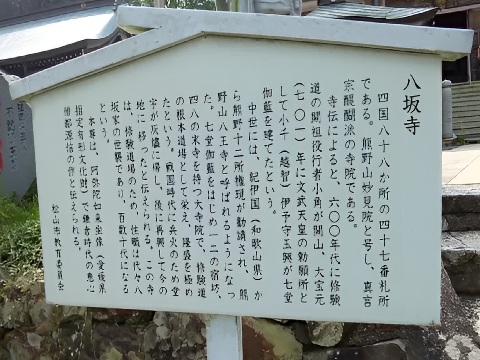 八坂寺
四国八十八か所の四十七番札所
である。熊野山妙見院と号し、真言
宗醍醐派の寺院である。
寺伝によると、六〇〇年代に修験
道の開祖役行者小角が開山、大宝元
（七〇一）年に文武天皇の勅願所と
して小千（越智）伊予守玉興が七堂
伽藍を建てたという。
中世には、紀伊国（和歌山県）か
ら熊野十二所権現が勧請され、熊
野山八王寺と呼ばれるようになっ
た。七堂伽藍をはじめ一二の宿坊、
四八の末寺を持つ大寺院で、修験道
の根本道場として栄え、隆盛を極め
たという。戦国時代に兵火のため堂
宇が灰燼に帰し、後に再興して今の
地に移ったと伝えられる。この寺
は、修験道場のため、住職は代々八
坂家の世襲であり、百数十代になる
という。
本尊は、阿弥陀如来坐像（愛媛県
指定有形文化財）で鎌倉時代の恵心
僧都源信の作と伝えられる。
松山市教育委員会